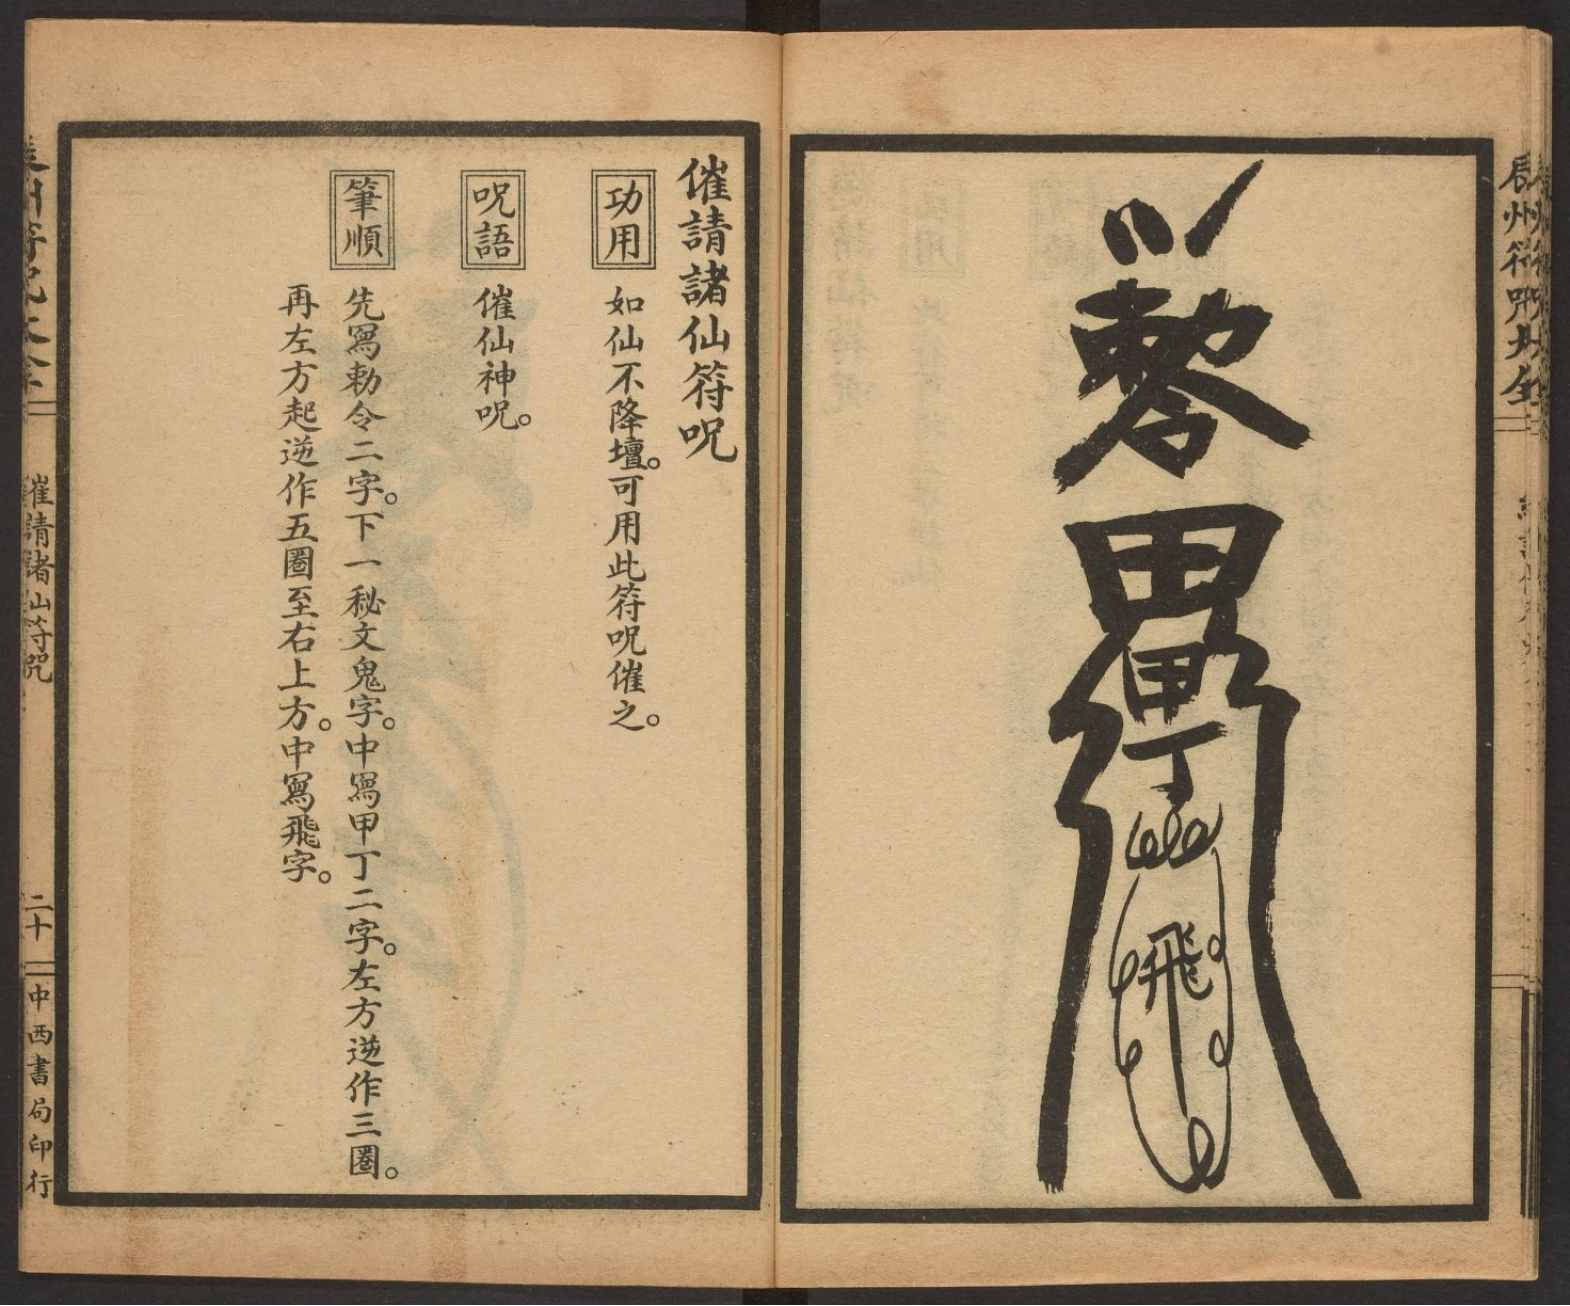 辰州符咒大全
敕令
甲丁
飛
催請諸仙符呪
功用 如仙不降壇。可用此符呪催之。
呪語 催仙神呪。
筆順 先寫勅令二字。下一秘文鬼字。中寫甲丁二字。左方逆作三圈。
再左方起逆作五圈至右上方。中寫飛字。
催請諸仙符咒
二十
中西書局印行